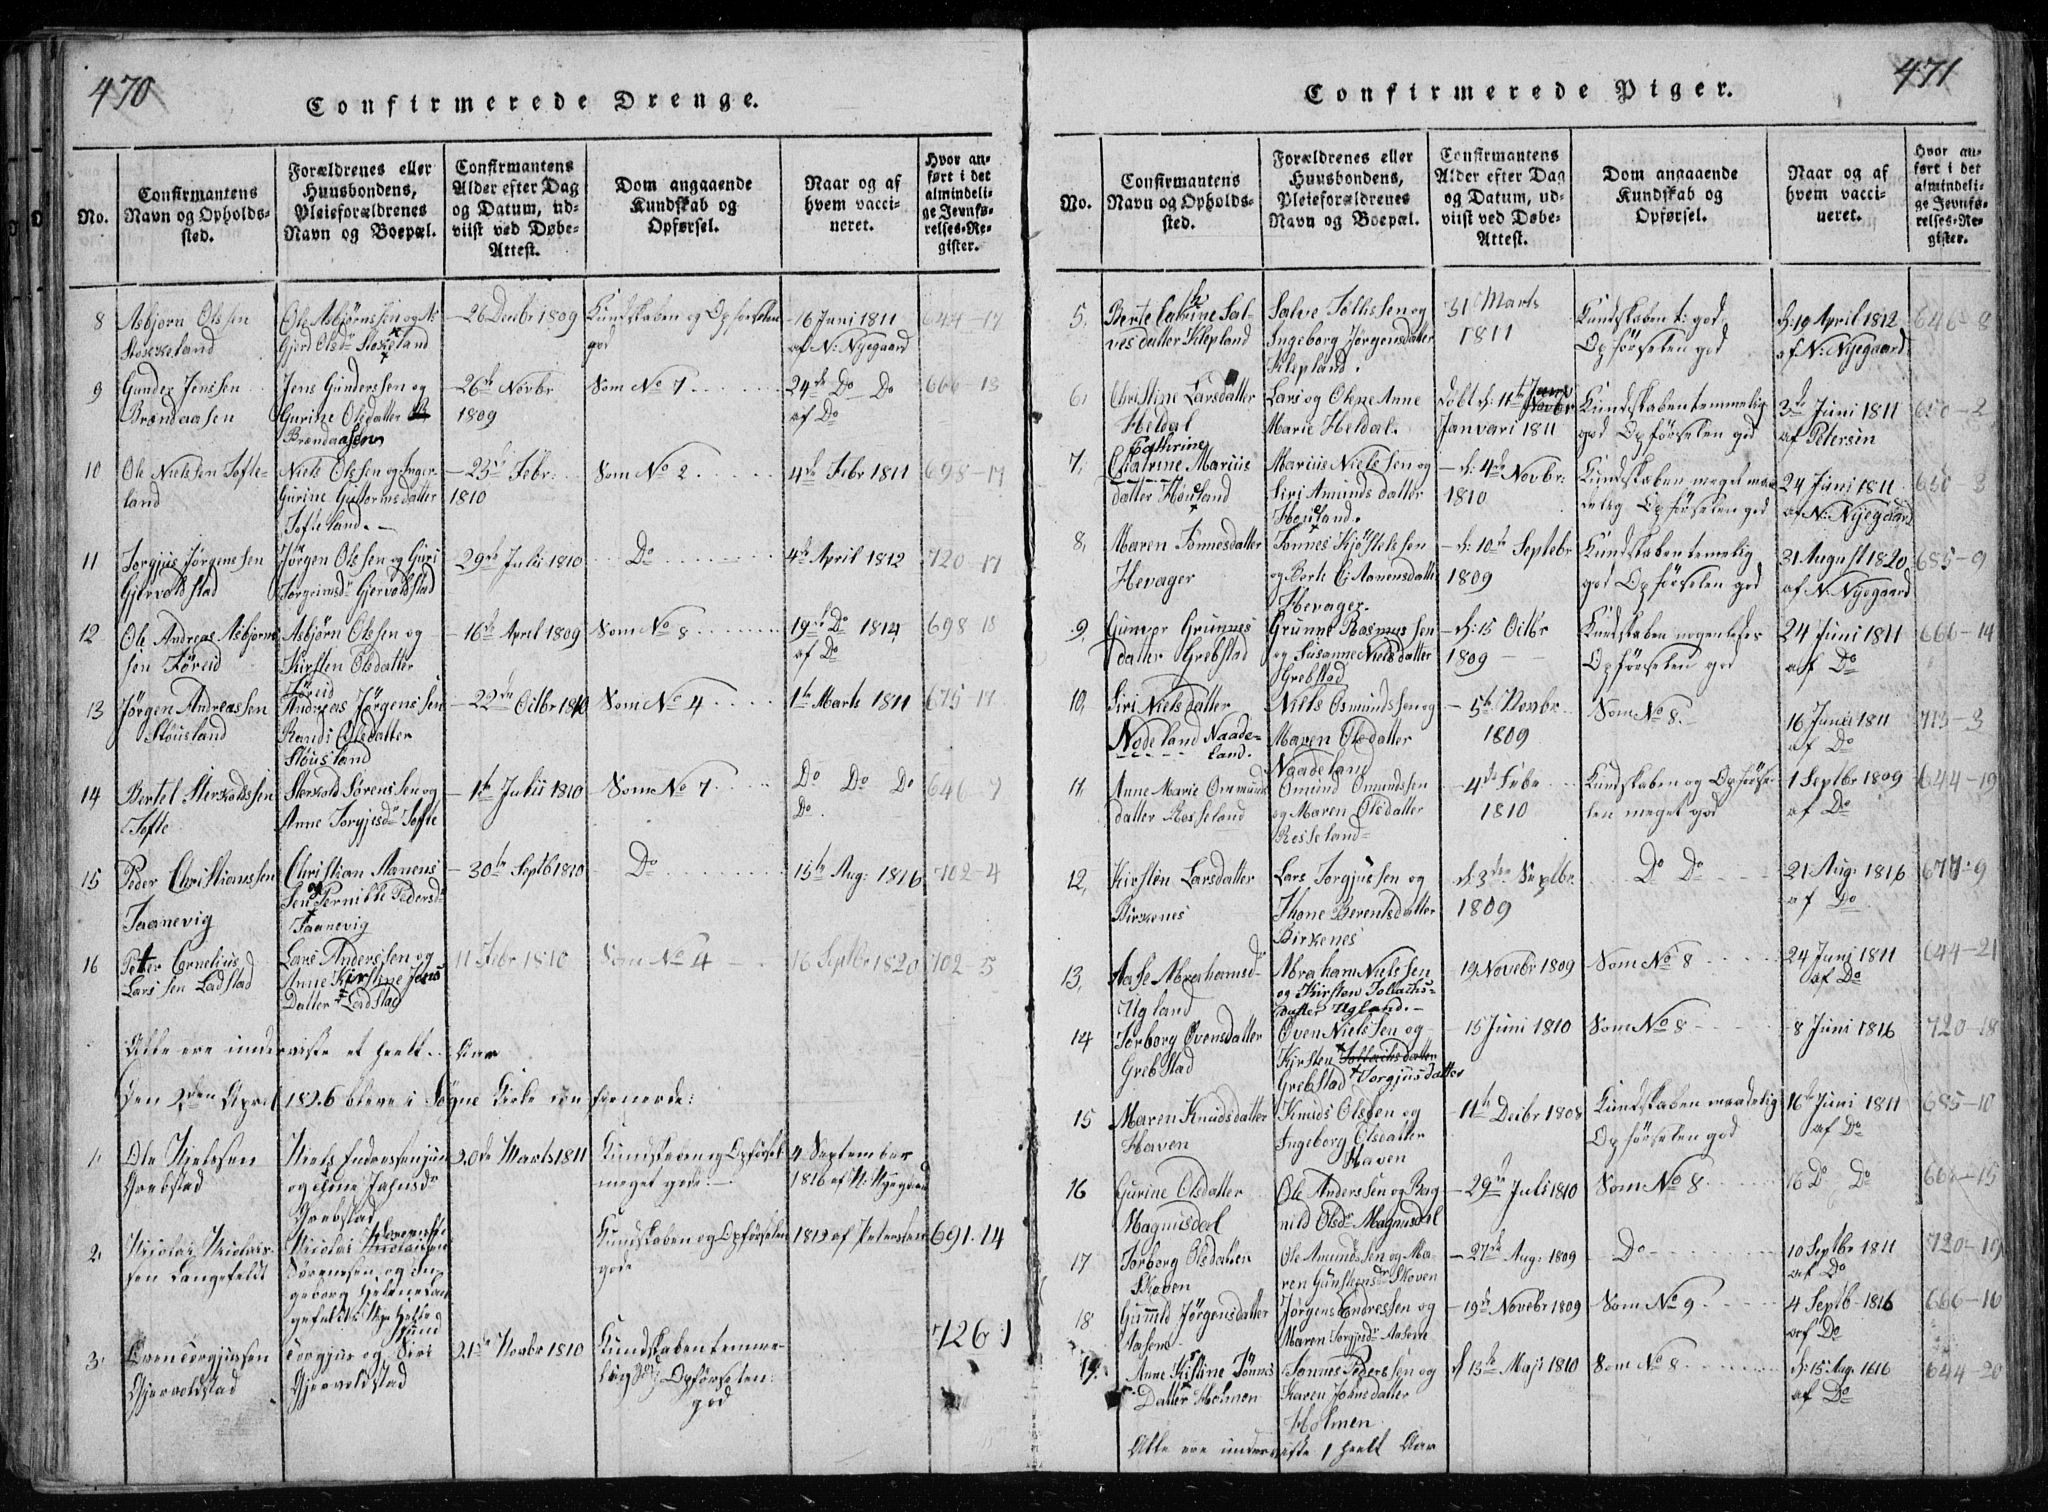 470
Confirmerede Drenge.
No.
Confirmantens Navn og Opholds-sted.
Forældrenes eller Huusbondens, Pleieforældrenes Navn og Boepæl.
Confirmantens Alder efter Dag og Datum, ud-viist ved Døbe-Attest.
Dom angaaende Kundskab og Opførsel.
Naar og af hvem vacci-neret.
Hvor an-ført i det almindeli-ge Jevnfø-relses-Re-gister.
8 Asbjorn Olssen Støckeland
Ole Asbjørnssen og As Gjerd Olsdr Støkeland
26 Decbr 1809
Kundskaben og Opførselen god
16 Juni 1811 af N: Nyegaard
644-17
9 Gunder Jenssen Brøndaasen
Jens Gunderssen og Gurine Olsdatter Brøndaasen
26de Novbr 1809
Som No 7
24de Do Do af Do
666-13
10 Ole Nielssen Tofte-land
Niels Olssen og Inger Gurine Guttormsdatter Tofteland.
23de Febr: 1810
Som No 2
4de Febr 1811
698-17
11 Torgjus Jørgenssen Gjervoldstad
Jørgen Olssen og Guri Torgrimsdr Gjervoldstad
29de Julii 1810
Do
4de April 1812
720-17
12 Ole Andreas Asbjørns sen Føreid
Asbjörn Olssen og Kirsten Olsdatter Føreid
16de April 1809
Som No 8
19de Do 1814 af Do
698-18
13 Jørgen Andreassen Støusland
Andreas Jørgenssen Randi Olsdatter Støusland
22de Octbr 1810
Som No 4
1te Marts 1811
675-17
14 Bertel Sterkoldssen Tofte
Sterkold Sørenssen og Anne Torgjusdr Tofte
1te Julii 1810
Som No 7
Do Do Do Do
646-7
15 Peder Christianssen Taanevig
Christian Aanens Sen og Pernille Pedersdr Taanevig
30te Septb 1810
Do
15de Aug: 1816
702-4
16 Peter Cornelius Larssen Ladstad
Lars Anderssen og Anne Kirstine Jens Datter Ladstad
11 Febr 1810
Som No 4
16 Septbr 1820
702-5
Alle ere underviste et heelt Aar
Den 2den April 1826 bleve i Søgne Kirke confirmerede:
1, Ole Nielssen Grebstad
Niels Endressen og Ane Jahnsdr Grebstad
20de Marts 1811
Kundskaben og Opførsel meget gode.
4 September 1816 af N: Nyegaard
2, Nicolai Nicolais-sen Langefeldt
Nicolai Sørenssen og In-geborg Helene Lan-gefeldt
Kundskaben og Opførselen gode
1812 af Petersen
691.14
3, Oven Torgjussen Gjervoldstad
Torgjus og Siri Gjervoldstad
21de Novbr 1810
Kundskaben temme-lig god Opførselen: god
726 1
471
Confirmerede Piger.
No.
Confirmantens Navn og Opholds-sted.
Forældrenes eller Huusbondens, Pleieforældrenes Navn og Boepæl.
Confirmantens Alder efter Dag og Datum, ud-viist ved Døbe-Attest.
Dom angaaende Kundskab og Opførsel.
Naar og af hvem vacci-neret.
Hvor an-ført i det almindeli-ge Jevnfø-relses-Re-gister.
5, Berte Catrine Sal-vesdatter Klepland
Salve Tollissen og Ingeborg Jørgensdatter Klepland.
31 Marts 1811
Kundskaben t: god, Opførselen god
d: 19 April 1812 af N: Nyegaard
646-8
6, Christine Larsdatter Heldal
Lars og Olene Anne Marie Heldal.
Døbt d: 11te Januari 1811
Kundskaben temmelig god Opførselen god
3de Juni 1811 af Petersen
650-2
7, Cathrine Marius datter Houland
Marius Nielssen og Siri Amundsdatter Houland.
d: 4de Novbr: 1810
Kundskaben meget maa delig Opførselen god
24 Juni 1811 af N: Nyegaard
650-3
8, Maren Tønnesdatter Hevager
Tønnes Kjøstelssen og Berte C: Aanensdatter Hevager.
d: 10de Septebr 1809
Kundskaben temelig god Opførselen god
31 August 1820 af N: Nyegaard
685-9
9, Gunvor Grunnes datter Grebstad
Grunne Rasmussen og Susanne Nielsdatter Grebstad
d: 15 Octbr 1809
Kundskaben nogenledes Opførselen god
24 Juni 1811 af Do
666-14
10, Siri Nielsdatter Nodeland Naade-land.
Niels Osmundssen og Maren Olsdatter Naadeland
5te Novbr 1809
Som No 8.
16 Junii 1811 af Do
713-3
11, Anne Marie Ommunds datter Rosseland
Omund Omundssen og Maren Olsdatter Rosseland
4de Febr 1810
Kundskaben og Opførse-len meget god
1 Septbr 1809 af Do
644-19
12, Kirsten Larsdatter Birkenes
Lars Torgjussen og Thone Berentsdatter Birkenes
d: 3de Septbr. 1809
Do Do
21 Aug: 1816 af Do
677-9
13, Aase Abrahamsdr Ugland
Abraham Nielssen og Kirsten Tollachs-datter Ugland.
19 Novebr 1809
Som No 8
24 Juni 1811 af Do
644-21
14 Torborg Ovensdatter Grebstad
Oven Nielssen og Kirsten Tollachsdatter Grebstad Torgjusdatter
15 Juni 1810
Som No 8
8 Juni 1816
720-18
15 Maren Knudsdatter Haven
Knuds Olssen og Ingeborg Olsdatter Haven
11te Decbr 1808
Kundskaben maadelig Opførselen god
16de Juni 1811 af Do
685-10
16 Gurine Olsdatter Magnusdal
Ole Anderssen og Rag nild Olsdr Magnusdal
29de Juli 1810
Som No 8
16 Do Do
666-15
17 Torborg Olsdatter Skoven
Ole Amundssen og Ma-ren Gunstensdr Skoven
27de Aug: 1809
Do
10 Septbr 1811 af Do
720-19
18 Gunnild Jørgensdatter Aasene
Jørgens Endressen og Maren Torgjusdr Aasene
19de Novebr 1809
Som No 9
4 Septb-1816 af Do
666-16
19. Anne Kirstine Tønnis Datter Holmen
Tønnes Pederssen og Karen Johnsdatter Holmen
d 13de Maji 1810
Som No 8
d: 15 Aug: 1616 af Do
644-20
Alle ere underviste 1 heelt Aar